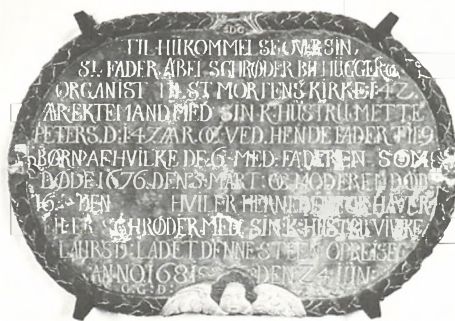 SDG
TIL HUKOMMELSE OVER SIN
SL. FADER ABEL SCHRØDER BILHUGGER OC
ORGANIST TIL ST MORTENS KIRKE I 42
AAR EKTEMAND MED SIN K. HUSTRU METTE
PETERS. D. I 47 AAR. OC VED. HENDE FADER TIL 9
BØRN AF HVILKE DE. 6. MED. FADEREN SOM
DØDE. 1676. DEN. 3. MART: OC MODEREN DØD
16 DEN HVILER HERNEDER
SCHRØDER MED. SIN K. HUSTRU VIVIKE
LAHRS D. LADET DENNE STEEN OPREISE
ANNO. 1681 DEN 24 IUN:
G: G: D: